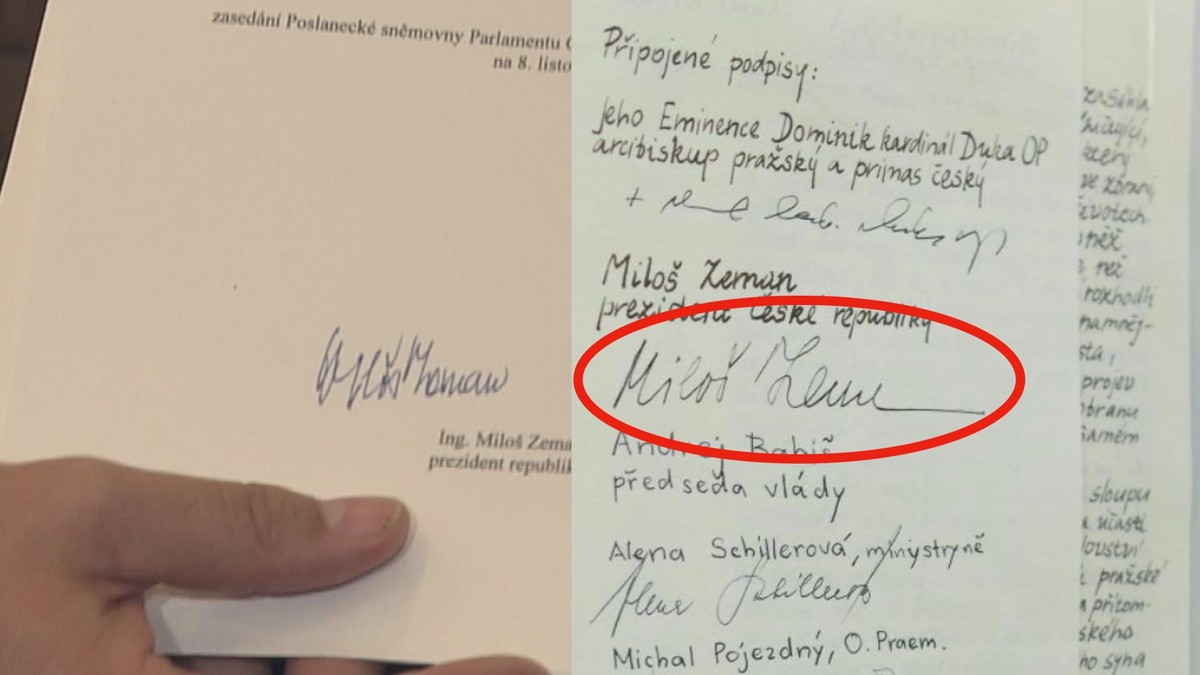 zasedání Poslanecké sněmovny Parlamentu
na 8. listo
Miloš Zeman
Ing. Miloš Zema
prezident republik
Připojené podpisy:
Jeho Eminence Dominik kardinál Duka OP
arcibiskup pražský a primas český
Miloš Zeman
prezident České republiky
Miloš Zeman
Andrej Babiš
předseda vlády
Alena Schillerová, ministryně
Alena Schillerová
Michal Pojezdný, O. Praem.
zasáhla
ve zbrani
životech
něž
než
rozhodli
sta,
projev
obranu
samém
sloupu
účasti
pražské
a přítom-
ského
ho syna